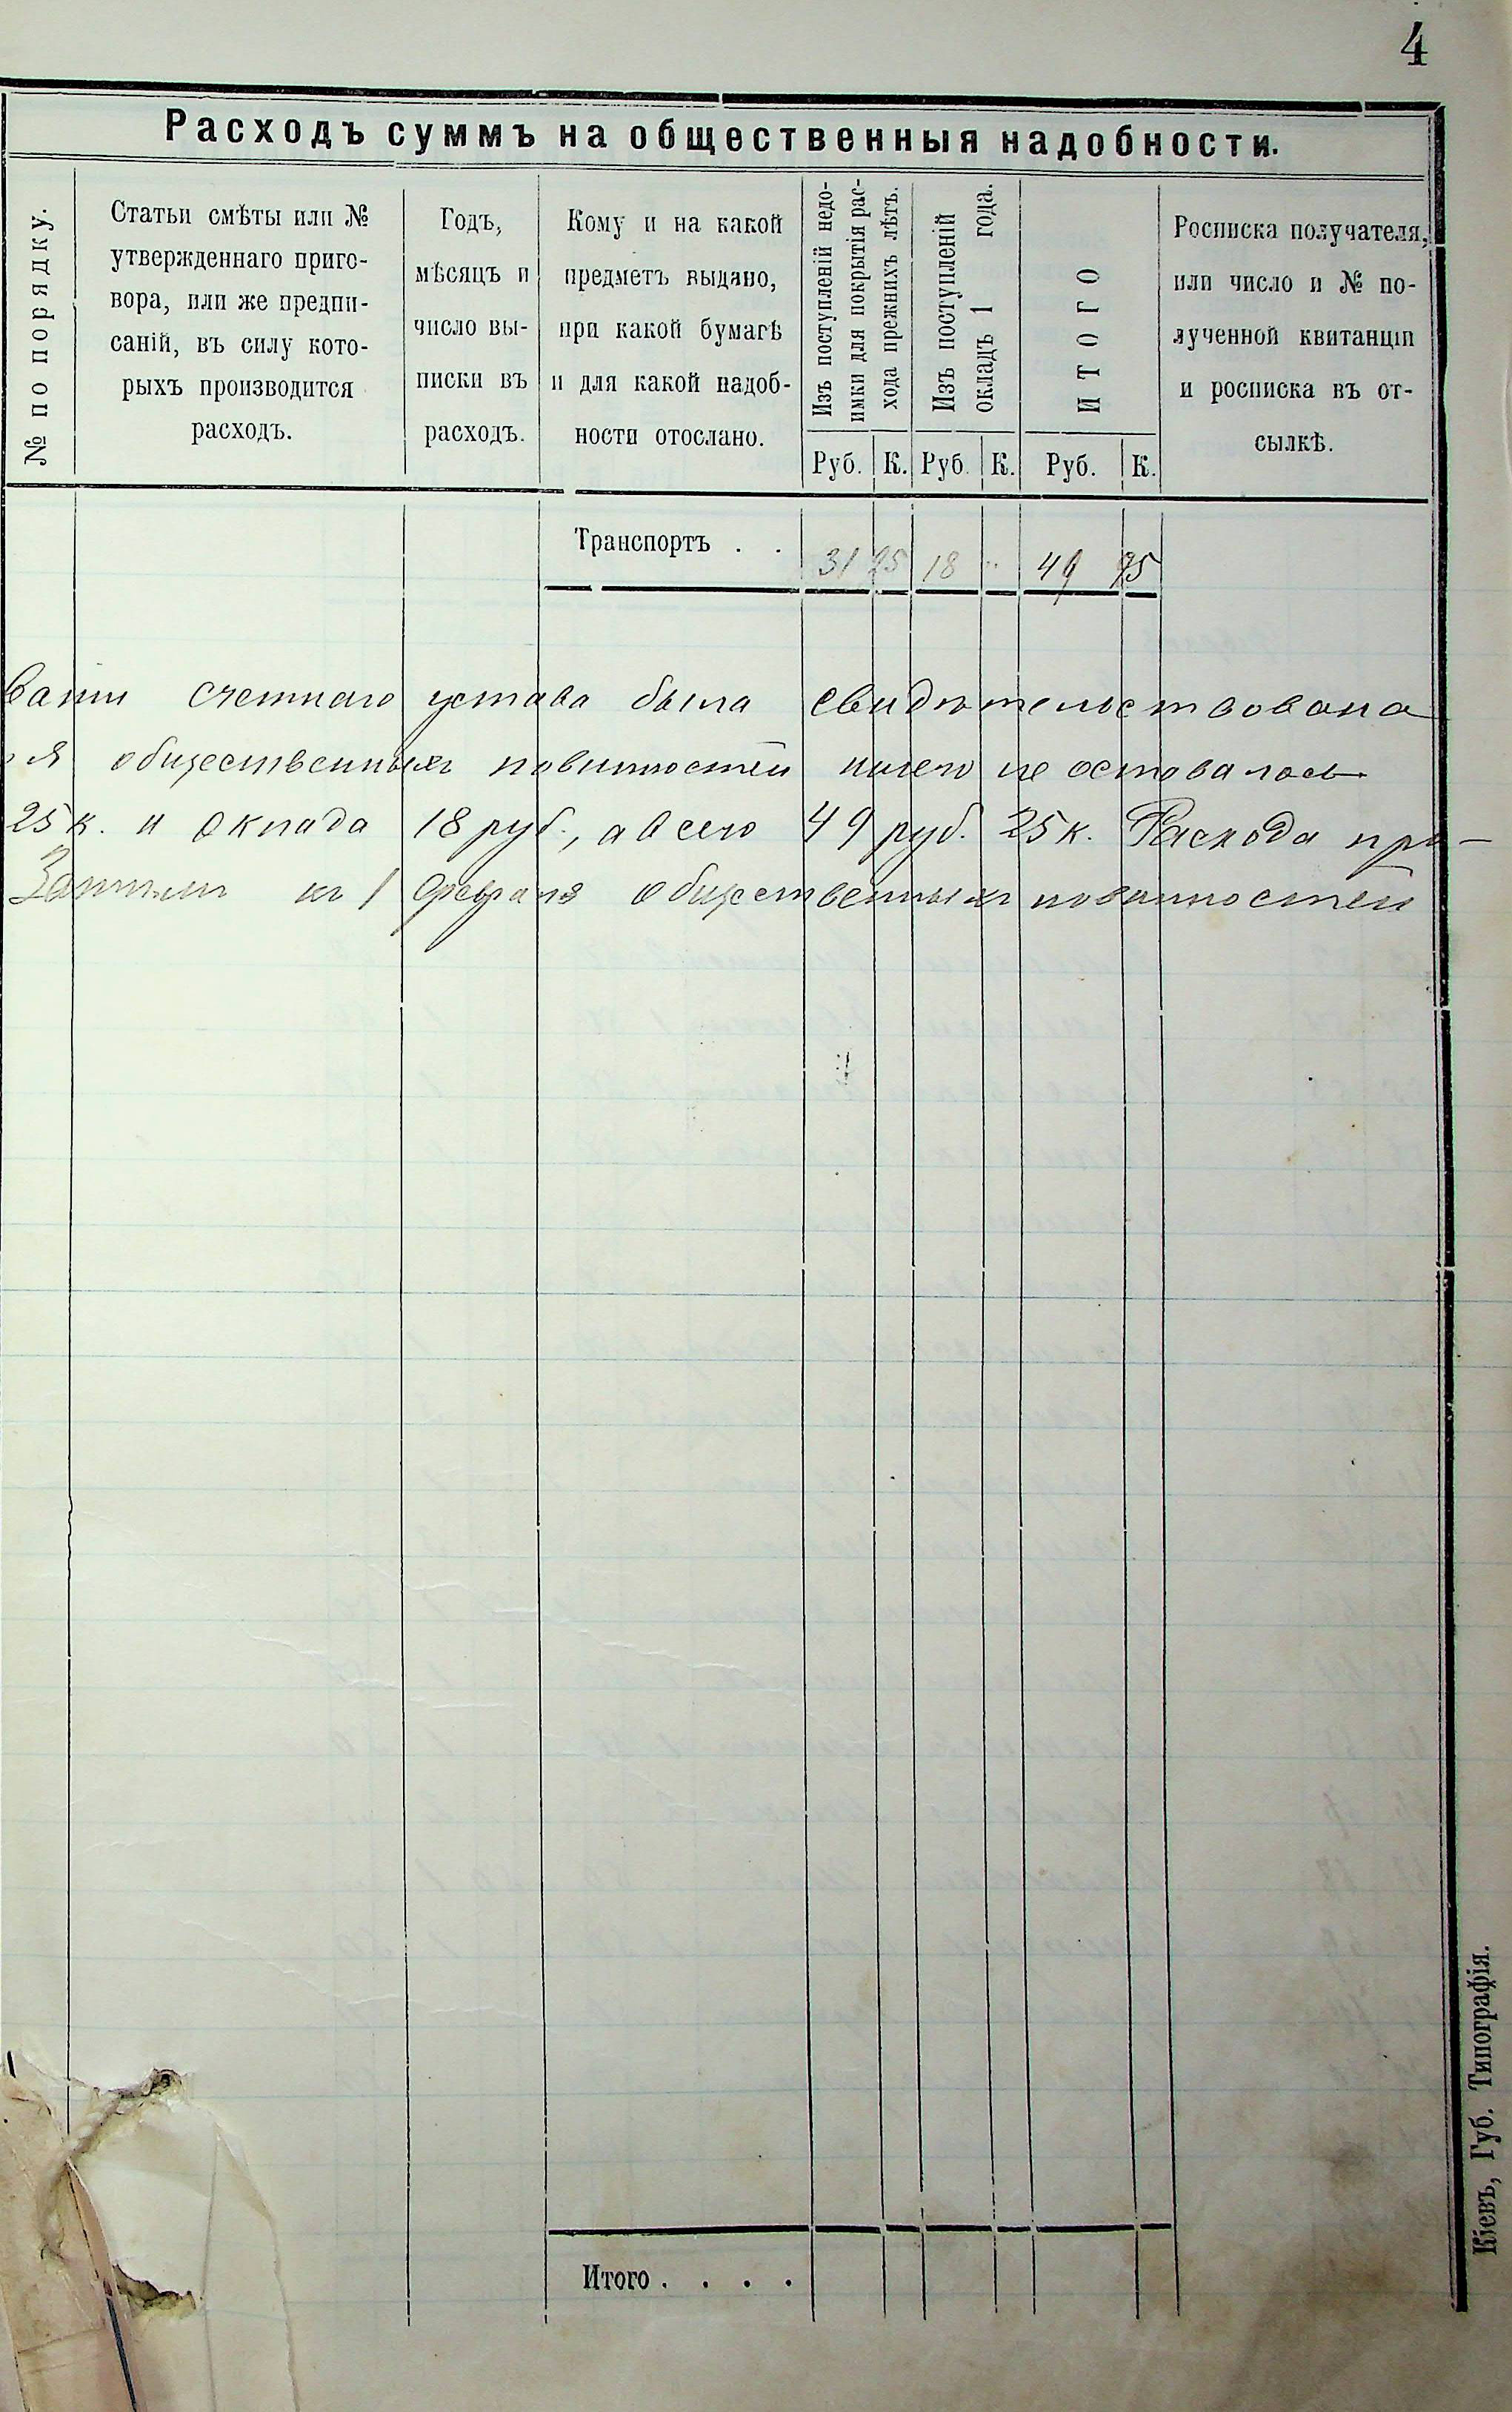 4
Расходъ суммъ на общественныя надобности.
№ по порядку.
Статьи смѣты или №
утвержденнаго приго-
вора, или же предпи-
саній, въ силу кото-
рыхъ производится
расходъ.
Годъ,
мѣсяцъ и
число вы-
писки въ
расходъ.
Кому и на какой
предметъ выдано,
при какой бумагѣ
и для какой надоб-
ности отослано.
Изъ поступленій недо-
имки для покрытія рас-
хода прежнихъ лѣтъ.
Изъ поступленій
окладъ 1 года.
ИТОГО
Росписка получателя,
или число и № по-
лученной квитанціи
и росписка въ от-
сылкѣ.
Руб. К. Руб. К. Руб. К.
Транспортъ . . 31 25 18 " 49 25
счетнаго устава была свидѣтельствована
общественныхъ повинностей ничего не оставалось
25 к. и оклада 18 руб., а всего 49 руб. 25 к. Расхода про-
Затѣмъ къ 1 февраля общественныхъ повинностей
Итого . . . .
Кіевъ, Губ. Типографія.